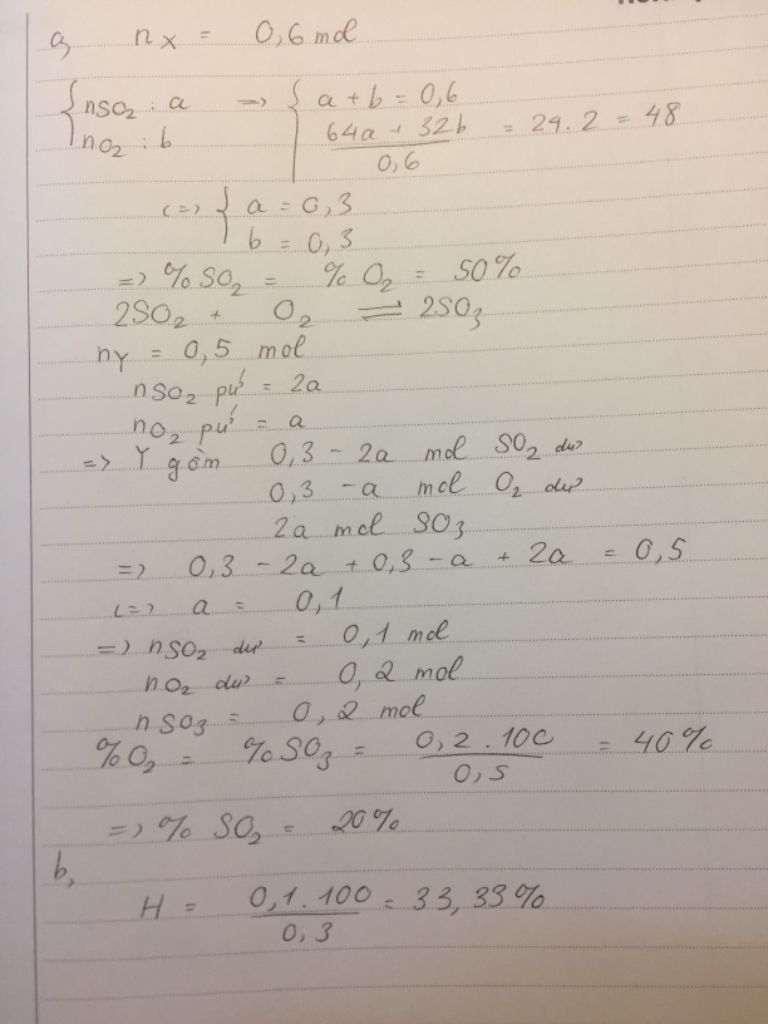 a, nX = 0,6 mol
{ nSO2 : a => { a + b = 0,6
nO2 : b (64a + 32b)/0,6 = 24.2 = 48
<=> { a = 0,3
b = 0,3
=> % SO2 = % O2 = 50%
2SO2 + O2 ⇌ 2SO3
nY = 0,5 mol
nSO2 pứ = 2a
nO2 pứ = a
=> Y gồm 0,3 - 2a mol SO2 dư
0,3 - a mol O2 dư
2a mol SO3
=> 0,3 - 2a + 0,3 - a + 2a = 0,5
<=> a = 0,1
=> nSO2 dư = 0,1 mol
nO2 dư = 0,2 mol
nSO3 = 0,2 mol
%O2 = %SO3 = (0,2 . 100)/0,5 = 40%
=> % SO2 = 20%
b,
H = (0,1 . 100)/0,3 = 33,33%